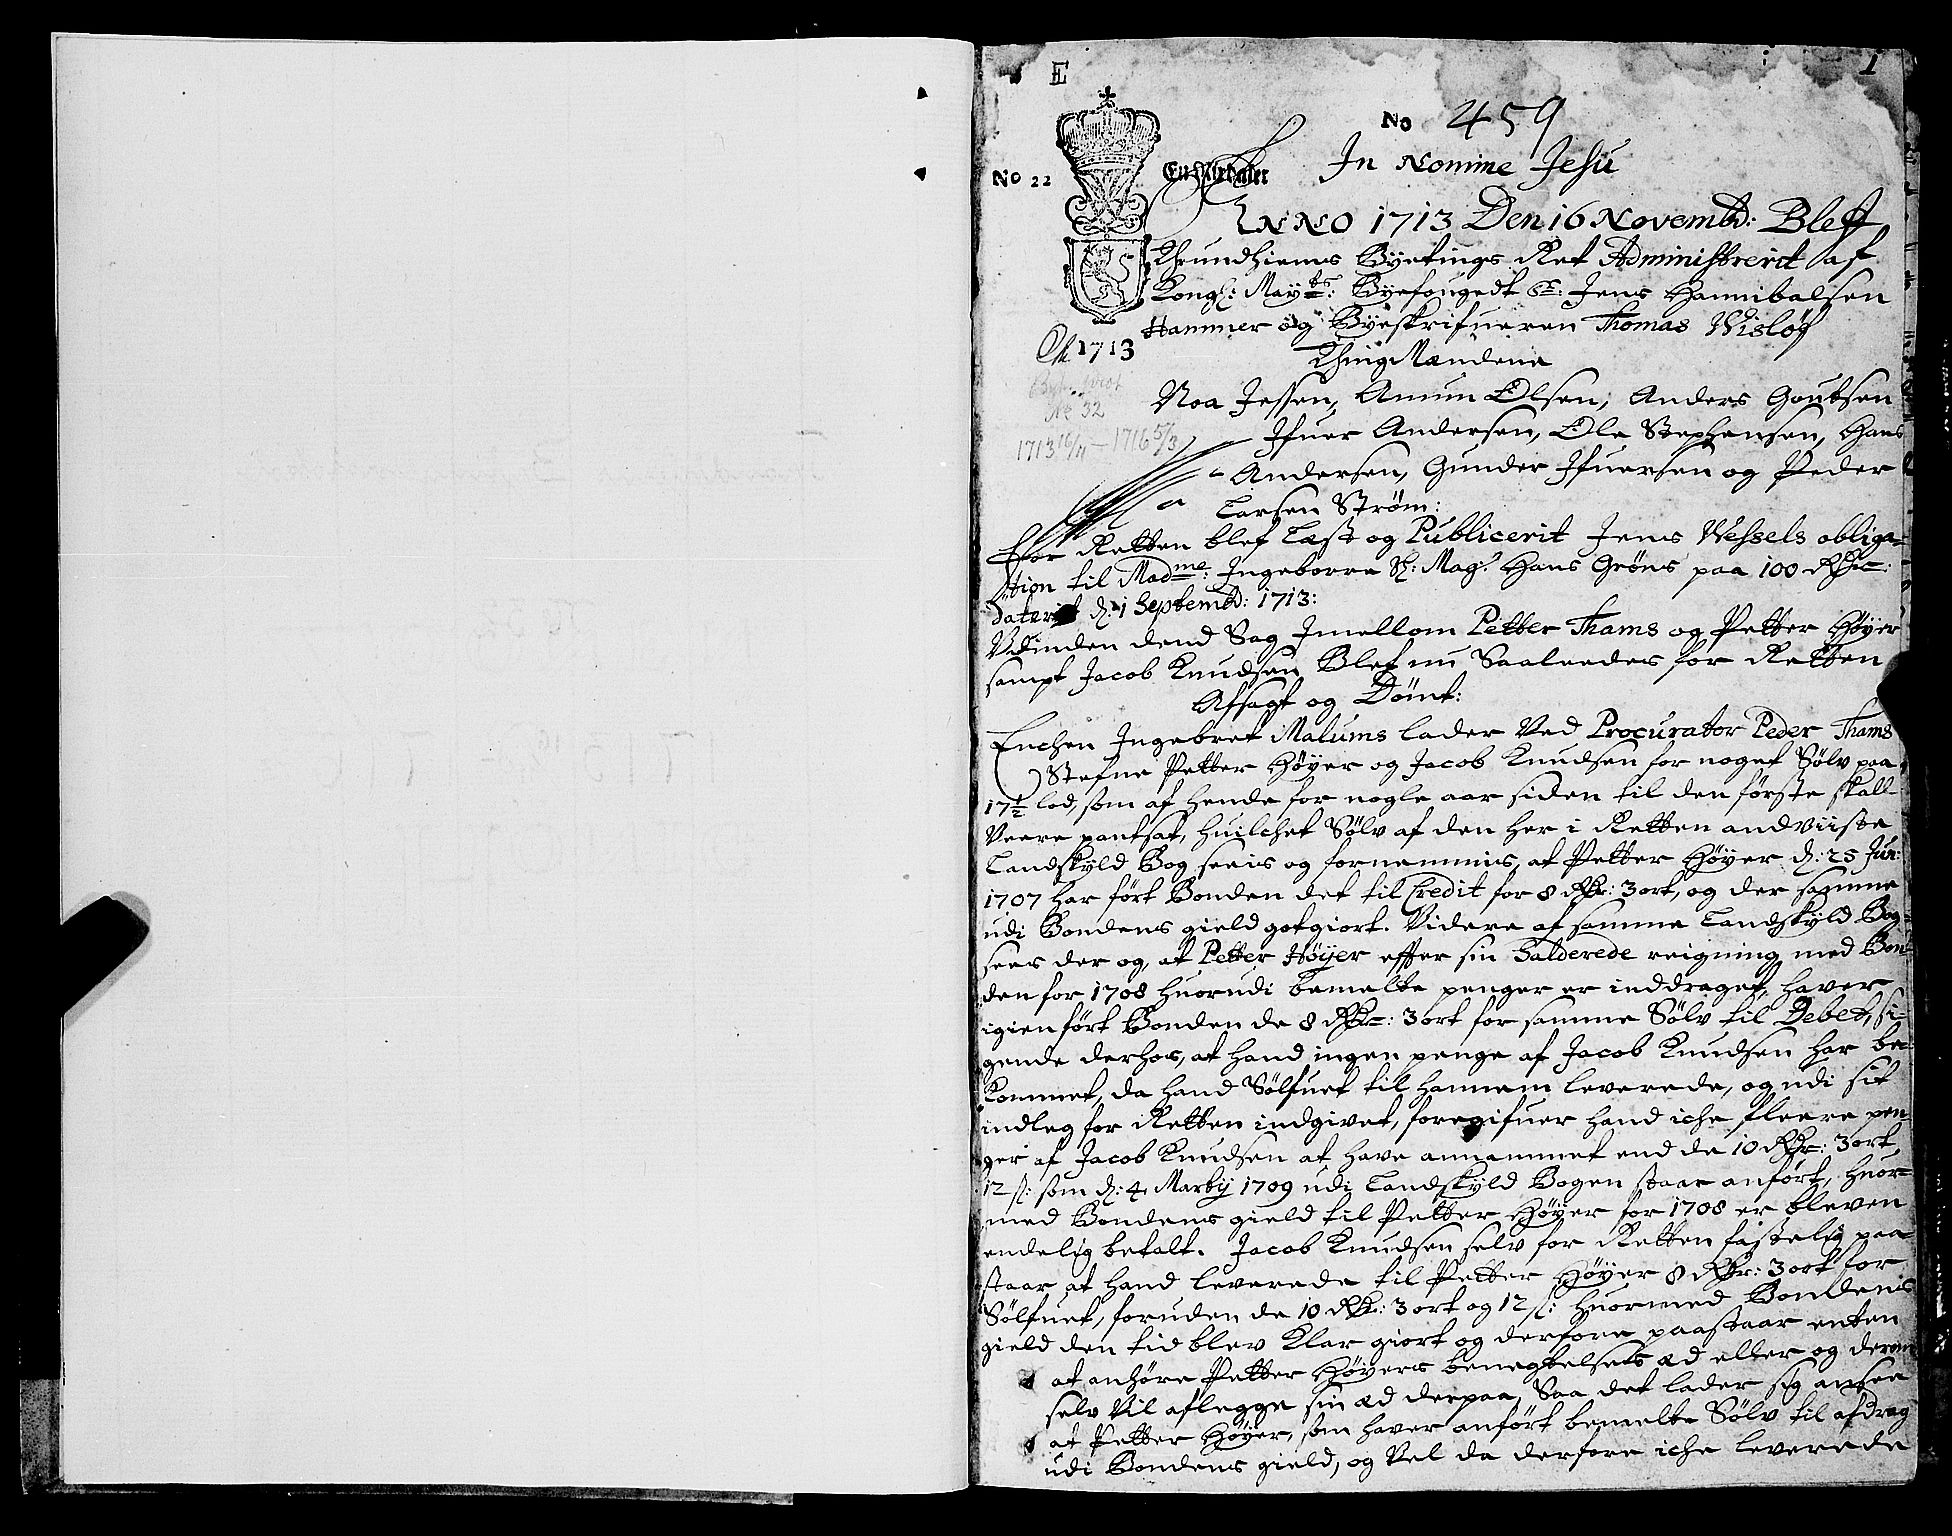 E
1
No 459
No 22
En Rixdaler
In Nomine Jesu
ANNO 1713 Den 16 Novembr: Bleff
Thrundhiems Byetings Ret Administrerit af
Kongl: Mayts: Byefougedt Sr: Jens Hannibalsen
Hammer og Byeskrifueren Thomas Wisløf
Ao 1713
ThingMændene
No 32
Noa Jessen, Amun Olsen, Anders Goutsen
1713 16/11 – 1716 5/3
Ifuer Andersen, Ole Stephensen, Hans
Andersen, Gunder Ifuersen og Peder
Larsen Strøm:
For Retten blef Læst og Publicerit Jens Wessels obliga-
tion til Madme: Ingeborre Sl: Mag: Hans Gröns paa 100 Rdr:
daterit d: 1 Septembr: 1713:
Udinden dend Sag Imellom Petter Thams og Petter Höyer
sampt Jacob Knudsen Blef nu Saaleedes for Retten
Afsagt og Dömt:
Enchen Ingebret Malums lader Ved Procurator Peder Thams
Stefne Petter Höyer og Jacob Knudsen for noget Sölv paa
17½ lod, som af hende for nogle aar siden til den förste skall
Veere pantsat, huilchet Sölv af den her i Retten andviiste
Landskyld Bog seeis og fornemmis, at Petter Höyer d: 25 Jun:
1707 har fört Bonden det til Credit for 8 Rdr: 3 ort, og der samme
udi Bondens gield gotgiort. Videre af samme Landskyld Bog
sees der og, at Petter Höyer effter sin Salderede reigning med Bon-
den for 1708 huorudi bemelte penger er inddraget, haver
igien fört Bonden de 8 Rdr: 3 ort for samme Sölv til Debet, si-
gende derhos, at hand ingen penge af Jacob Knudsen har be-
kommet, da hand Sölfuet til hannem leverede, og udi sit
indleg for Retten indgivet, foregifuer hand iche fleere pen-
ger af Jacob Knudsen at have annammet end de 10 Rdr: 3 ort,
12 s: som d: 4 Marty 1709 udi Landskyld Bogen staar anfört, huor-
med Bondens gield til Petter Höyer for 1708 er bleven
endelig betalt. Jacob Knudsen selv for Retten fastelig paa
staar at hand leverede til Petter Höyer 8 Rdr: 3 ort for
Sölfuet, foruden de 10 Rdr: 3 ort og 12 s: huormed Bondens
gield den tid blev Klar giort og derfore paastaar enten
at anhöre Petter Höyers benegtelses æd eller og derom
selv Vil aflegge sin æd derpaa, Saa det lader sig ansee
at Petter Höyer, som haver anfört bemelte Sölv til afdrag
udi Bondens gield, og Vel da derfore iche leverede